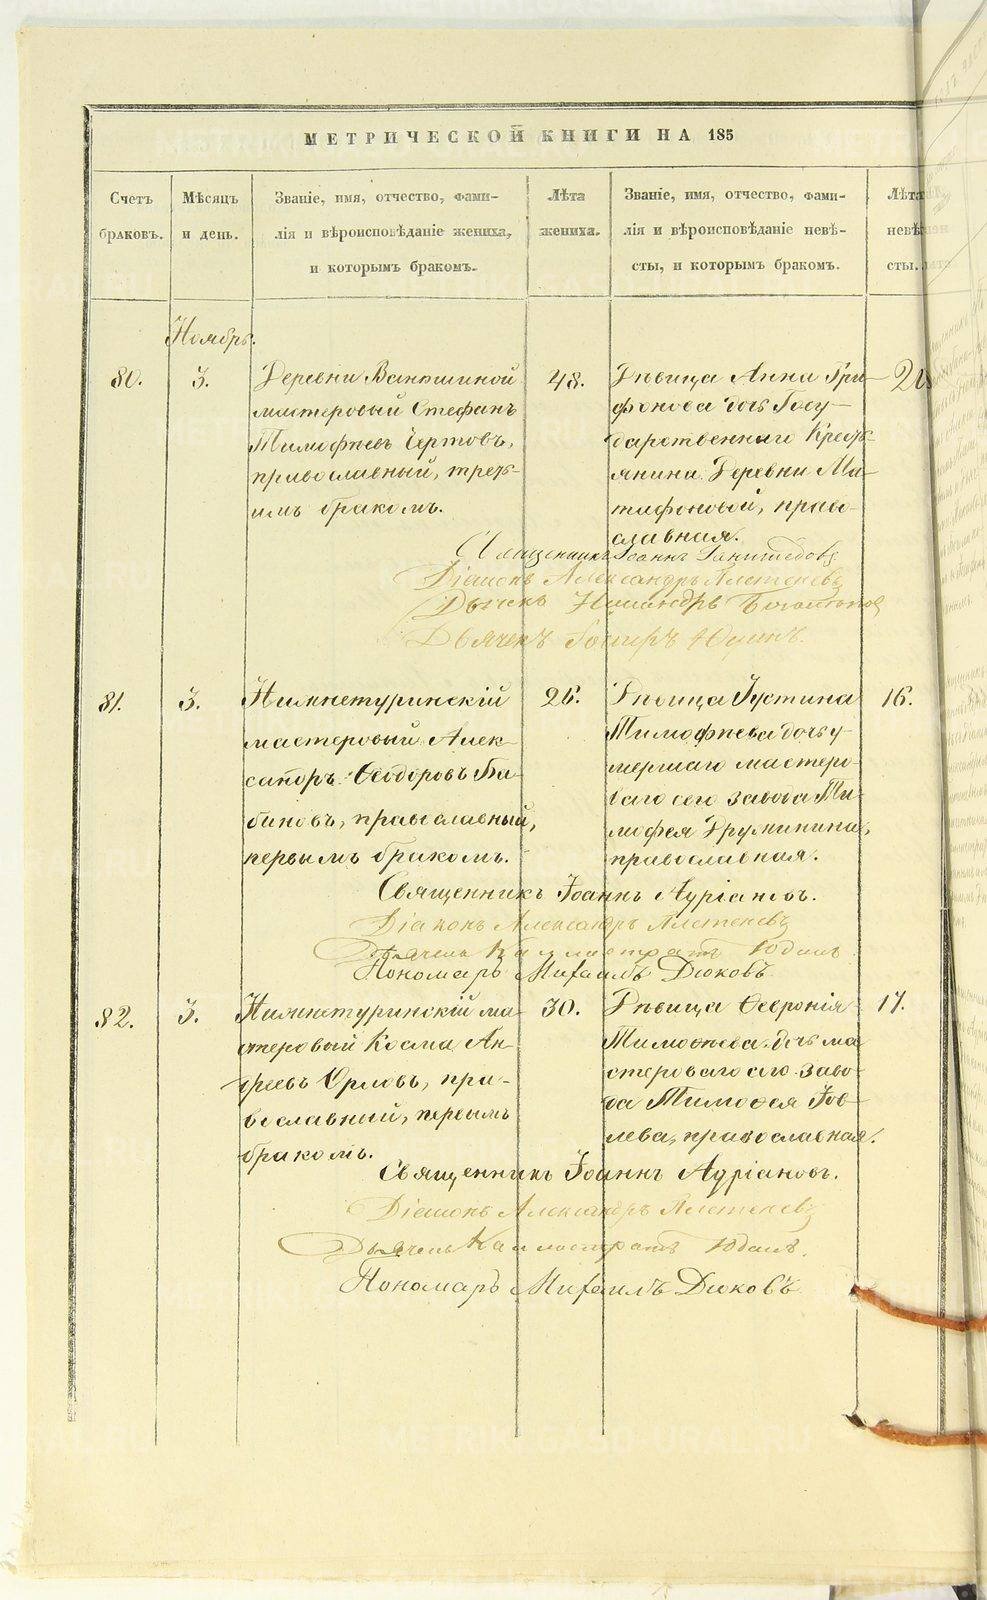 МЕТРИЧЕСКОЙ КНИГИ НА 185
Счетъ браковъ.
Мѣсяцъ и день.
Званіе, имя, отчество, фами-
лія и вѣроисповѣданіе жениха,
и которымъ бракомъ.
Лѣта жениха.
Званіе, имя, отчество, фами-
лія и вѣроисповѣданіе невѣ-
сты, и которымъ бракомъ.
Лѣта невѣ
сты.
Ноябрь.
80.
3.
Деревни Ванюшиной
мастеровый Стефанъ
Тимофѣевъ Чертовъ,
православный, треть-
имъ бракомъ.
48.
Дѣвица Анна Три-
фонова дочь Госу-
дарственнаго Кресть-
янина Деревни Ма-
тифоновой, право-
славная.
Священникъ Іоаннъ
Діаконъ Александръ Плетеневъ
Дьячекъ
Дьячекъ
81.
3.
Нижнетуринскій
мастеровый Алек-
сандръ Ѳеодоровъ Ба-
биновъ, православный,
первымъ бракомъ.
26.
Дѣвица Іустина
Тимофѣева дочь у-
мершаго мастеро-
ваго сего завода Ти-
мофея Дружинина,
православная.
16.
Священникъ Іоаннъ Адріановъ.
Діаконъ Александръ Плетеневъ
Дьячекъ Каллистратъ Юдинъ
Пономарь Михаилъ Дюковъ
82.
3.
Нижнетуринскій ма-
стеровый Косма Ан-
дреевъ Орловъ, пра-
вославный, первымъ
бракомъ.
30.
Дѣвица Ѳевронія
Тимоѳеева дочь ма-
стероваго сего заво-
да Тимоѳея Іов-
лева, православная.
17.
Священникъ Іоаннъ Адріановъ.
Діаконъ Александръ Плетеневъ
Дьячекъ Каллистратъ Юдинъ.
Пономарь Михаилъ Дюковъ
METRIKI.GASO-URAL.RU